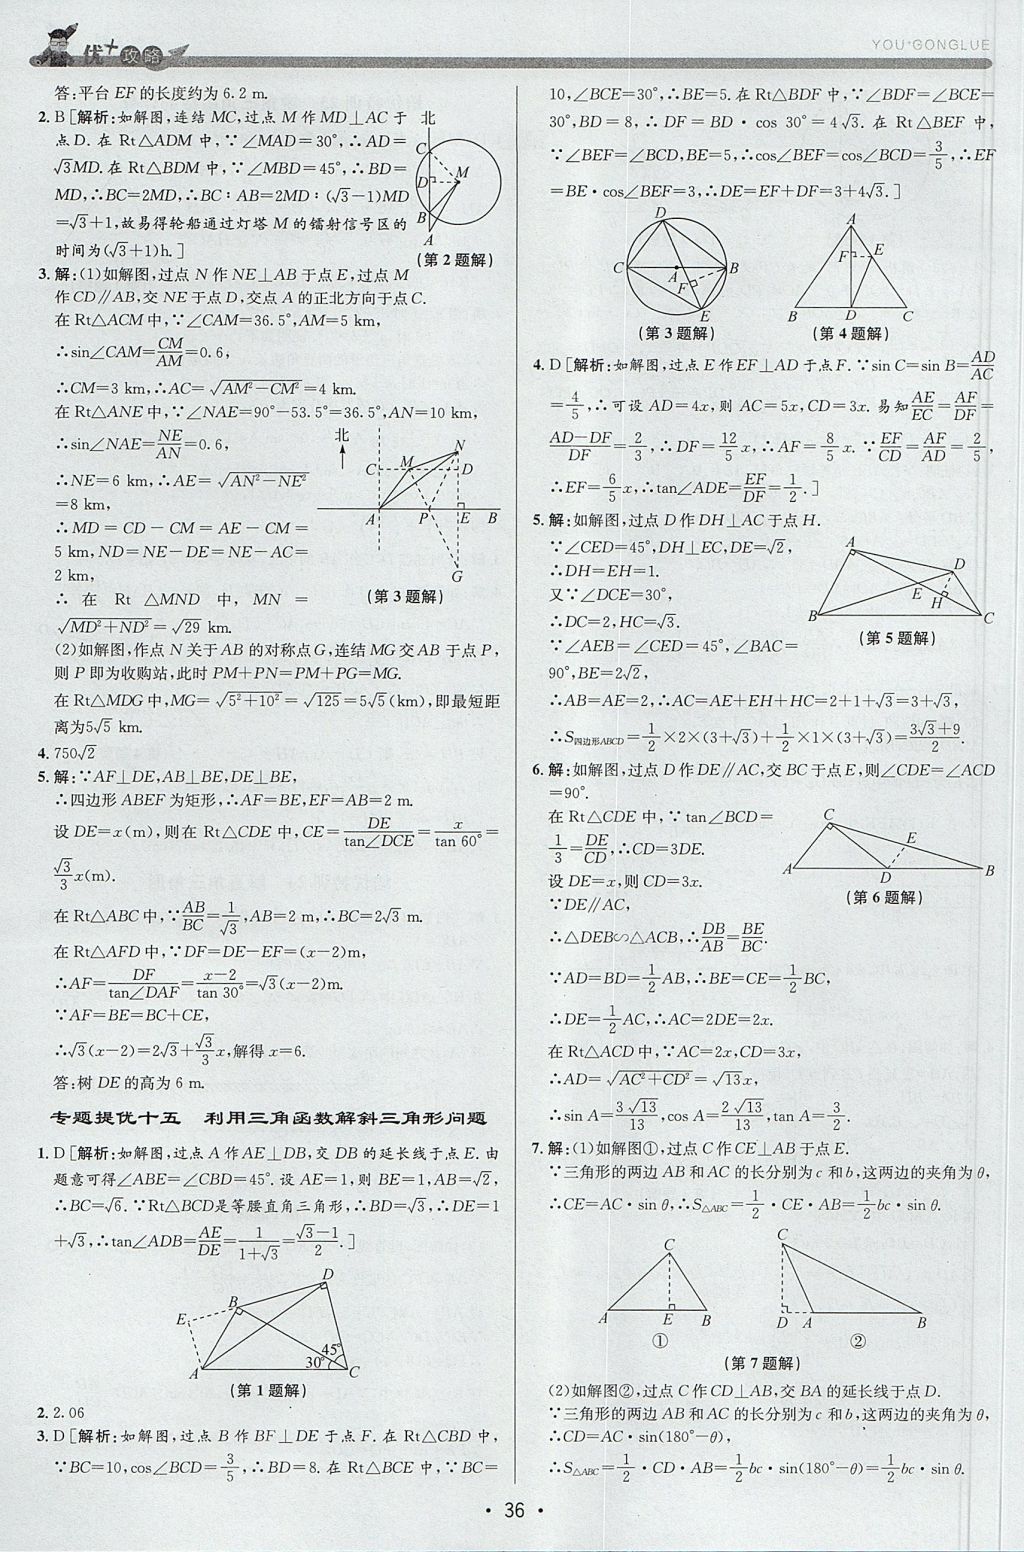 优+攻略
YOU+GONGLUE
答:平台EF的长度约为6.2 m.
2. B [解析:如解图,连结MC,过点M作MD⊥AC于
点D.在Rt△ADM中,∵∠MAD=30°,∴AD=
√3MD.在Rt△BDM中,∵∠MBD=45°,∴BD=
MD,∴BC=2MD,∴BC∶AB=2MD∶(√3-1)MD
=√3+1,故易得轮船通过灯塔M的镭射信号区的
时间为(√3+1)h.]
北
C
D
M
B
A
(第2题解)
3. 解:(1)如解图,过点N作NE⊥AB于点E,过点M
作CD∥AB,交NE于点D,交点A的正北方向于点C.
在Rt△ACM中,∵∠CAM=36.5°,AM=5 km,
∴sin∠CAM=CM/AM=0.6,
∴CM=3 km,∴AC=√(AM²-CM²)=4 km.
在Rt△ANE中,∵∠NAE=90°-53.5°=36.5°,AN=10 km,
∴sin∠NAE=NE/AN=0.6,
∴NE=6 km,∴AE=√(AN²-NE²)
=8 km,
∴MD=CD-CM=AE-CM=
5 km,ND=NE-DE=NE-AC=
2 km,
∴在Rt△MND中,MN=
√(MD²+ND²)=√29 km.
北
N
C M D
A P E B
G
(第3题解)
(2)如解图,作点N关于AB的对称点G,连结MG交AB于点P,
则P即为收购站,此时PM+PN=PM+PG=MG.
在Rt△MDG中,MG=√(5²+10²)=√125=5√5(km),即最短距
离为5√5 km.
4. 750√2
5. 解:∵AF⊥DE,AB⊥BE,DE⊥BE,
∴四边形ABEF为矩形,∴AF=BE,EF=AB=2 m.
设DE=x(m),则在Rt△CDE中,CE=DE/tan∠DCE=x/tan 60°=
√3/3x(m).
在Rt△ABC中,∵AB/BC=1/√3,AB=2 m,∴BC=2√3 m.
在Rt△AFD中,∵DF=DE-EF=(x-2)m,
∴AF=DF/tan∠DAF=x-2/tan 30°=√3(x-2)m.
∵AF=BE=BC+CE,
∴√3(x-2)=2√3+√3/3x,解得x=6.
答:树DE的高为6 m.
专题提优十五 利用三角函数解斜三角形问题
1. D [解析:如解图,过点A作AE⊥DB,交DB的延长线于点E.由
题意可得∠ABE=∠CBD=45°.设AE=1,则BE=1,AB=√2,
∴BC=√6.∵Rt△BCD是等腰直角三角形,∴BD=√3,∴DE=1
+√3,∴tan∠ADB=AE/DE=1/(1+√3)=(√3-1)/2.]
D
B
E
45°
30°
A C
(第1题解)
2. 2.06
3. D [解析:如解图,过点B作BF⊥DE于点F.在Rt△CBD中,
∵BC=10,cos∠BCD=3/5,∴BD=8.在Rt△BCE中,∵BC=
10,∠BCE=30°,∴BE=5.在Rt△BDF中,∵∠BDF=∠BCE=
30°,BD=8,∴DF=BD·cos 30°=4√3.在Rt△BEF中,
∵∠BEF=∠BCD,BE=5,∴cos∠BEF=cos∠BCD=3/5,∴EF
=BE·cos∠BEF=3,∴DE=EF+DF=3+4√3.]
D
C A B
F
E
(第3题解)
A
F E
B D C
(第4题解)
4. D [解析:如解图,过点E作EF⊥AD于点F.∵sin C=sin B=AD/AC
=4/5,∴可设AD=4x,则AC=5x,CD=3x.易知AE/EC=AF/DF=
AD-DF/DF=2/3,∴DF=12/5x,∴AF=8/5x.∵EF/CD=AF/AD=2/5,
∴EF=6/5x,∴tan∠ADE=EF/DF=1/2.]
5. 解:如解图,过点D作DH⊥AC于点H.
∵∠CED=45°,DH⊥EC,DE=√2,
∴DH=EH=1.
又∵∠DCE=30°,
∴DC=2,HC=√3.
∵∠AEB=∠CED=45°,∠BAC=
90°,BE=2√2,
A
D
E
H
B C
(第5题解)
∴AB=AE=2,∴AC=AE+EH+HC=2+1+√3=3+√3,
∴S四边形ABCD=1/2×2×(3+√3)+1/2×1×(3+√3)=(3√3+9)/2.
6. 解:如解图,过点D作DE∥AC,交BC于点E,则∠CDE=∠ACD
=90°.
在Rt△CDE中,∵tan∠BCD=
1/3=DE/CD,∴CD=3DE.
设DE=x,则CD=3x.
∵DE∥AC,
C
E
A D B
(第6题解)
∴△DEB∽△ACB,∴DB/AB=BE/BC.
∵AD=BD=1/2AB,∴BE=CE=1/2BC,
∴DE=1/2AC,∴AC=2DE=2x.
在Rt△ACD中,∵AC=2x,CD=3x,
∴AD=√(AC²+CD²)=√13x,
∴sin A=3√13/13,cos A=2√13/13,tan A=3/2.
7. 解:(1)如解图①,过点C作CE⊥AB于点E.
∵三角形的两边AB和AC的长分别为c和b,这两边的夹角为θ,
∴CE=AC·sin θ,∴S△ABC=1/2·CE·AB=1/2bc·sin θ.
C
A E B
①
C
D A B
②
(第7题解)
(2)如解图②,过点C作CD⊥AB,交BA的延长线于点D.
∵三角形的两边AB和AC的长分别为c和b,这两边的夹角为θ,
∴CD=AC·sin(180°-θ),
∴S△ABC=1/2·CD·AB=1/2bc·sin(180°-θ)=1/2bc·sin θ.
• 36 •